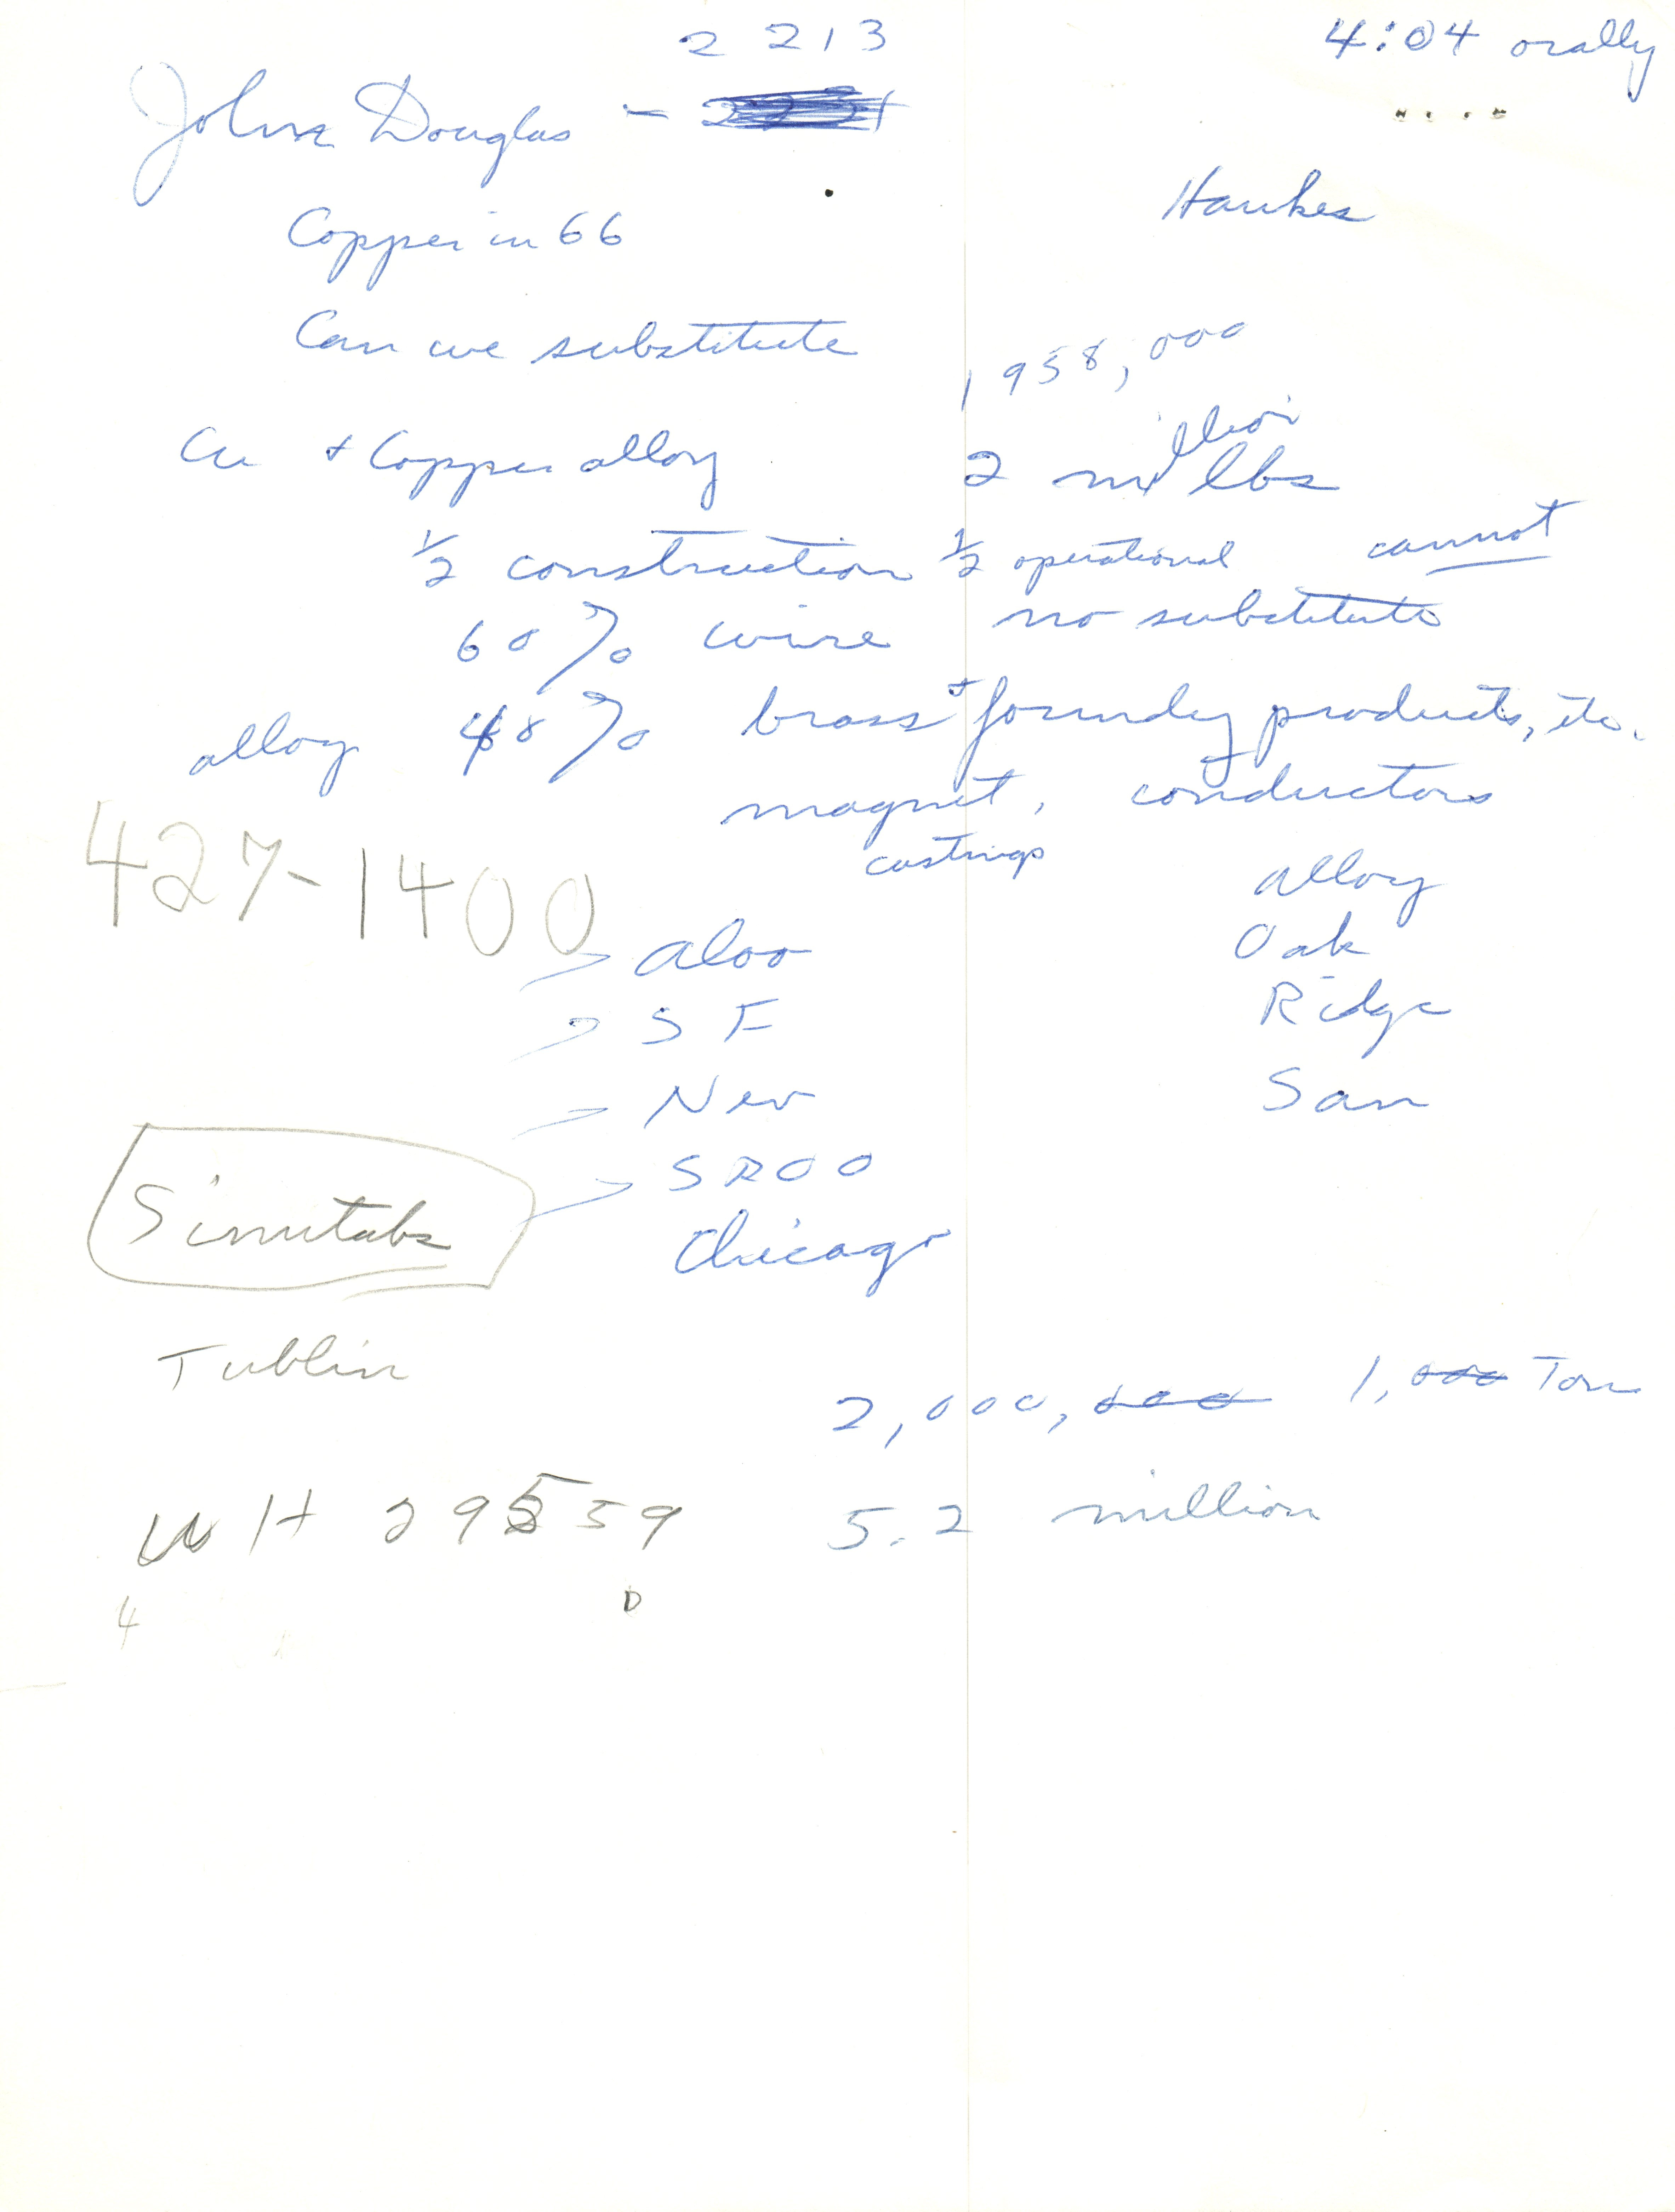 2 2 1 3
4:04 orally
John Douglas -
Hawkes
Copper in 66
Can we substitute
1958,000
Cu + Copper alloy 2 million lbs
1/2 construction 1/2 operational cannot
60% wire no substitute
alloy 48% brass + foundry products, etc.
magnet, conductors
castings
427-1400
alloy
Aloo
Oak
SF
Ridge
Nev
San
SROO
Simitabs
Chicago
Tublin
2,000,000 1,000 Ton
WH 29559 5.2 million
4 D